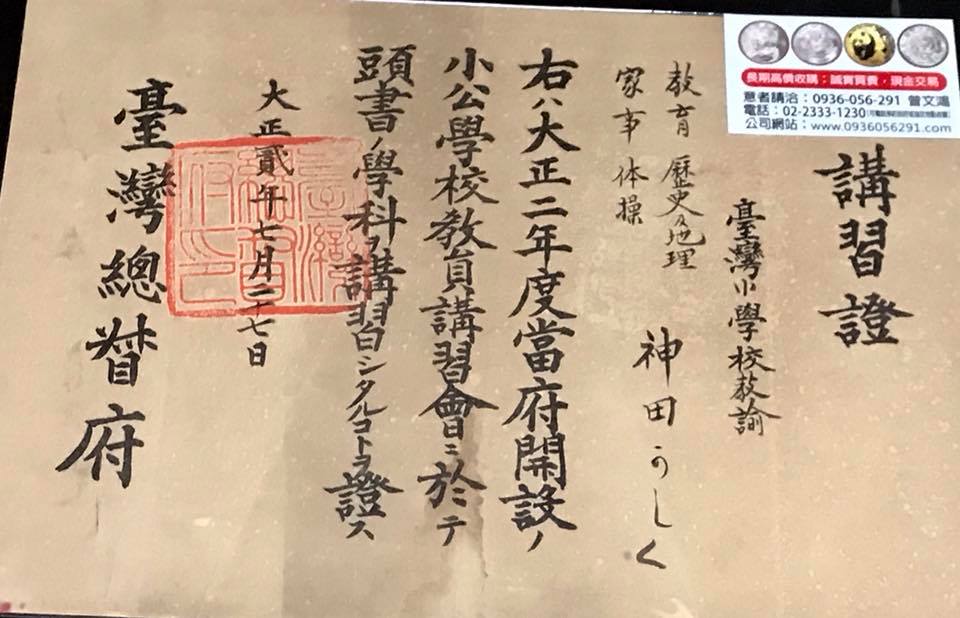 講習證
臺灣小學校教諭
教育 歷史及地理
家事 体操
神田うしく
右ハ大正二年度當府開設ノ
小公學校教員講習會ニ於テ
頭書ノ學科ヲ講習シタルコトヲ證ス
大正貳年七月二十七日
臺灣總督府
長期高價收購：誠實買賣，現金交易
意者請洽：0936-056-291 曾文鴻
電話：02-2333-1230
公司網站：www.0936056291.com